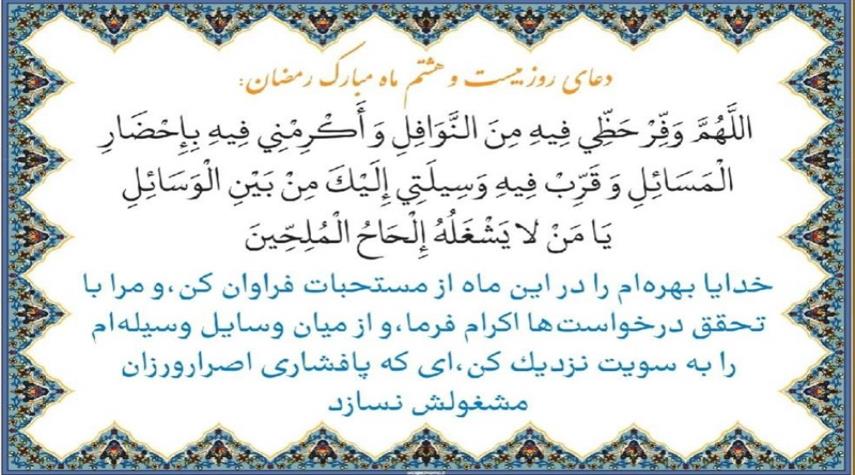 دعای روز بیست و هشتم ماه مبارک رمضان:
اللَّهُمَّ وَفِّرْ حَظِّي فِيهِ مِنَ النَّوَافِلِ وَ أَكْرِمْنِي فِيهِ بِإِحْضَارِ
الْمَسَائِلِ وَ قَرِّبْ فِيهِ وَسِيلَتِي إِلَيْكَ مِنْ بَيْنِ الْوَسَائِلِ
يَا مَنْ لا يَشْغَلُهُ إِلْحَاحُ الْمُلِحِّينَ
خدایا بهره‌ام را در این ماه از مستحبات فراوان کن،و مرا با
تحقق درخواست‌ها اکرام فرما،و از میان وسایل وسیله‌ام
را به سویت نزدیك کن،ای که پافشاری اصرارورزان
مشغولش نسازد